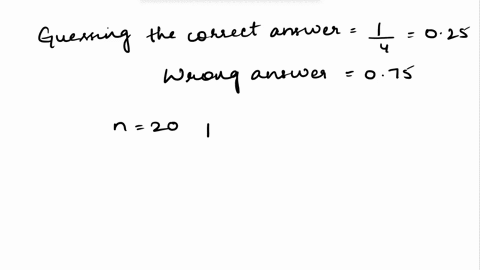 Guessing the correct answer = 1/4 = 0.25
Wrong answer = 0.75
n = 20 |